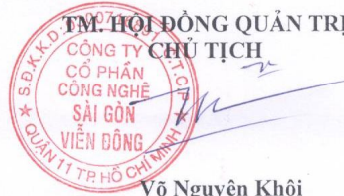 TM. HỘI ĐỒNG QUẢN TRỊ
CHỦ TỊCH
CÔNG TY
CỔ PHẦN
CÔNG NGHỆ
SÀI GÒN
VIỄN ĐÔNG
QUẬN 11 TP. HỒ CHÍ MINH
Võ Nguyên Khôi